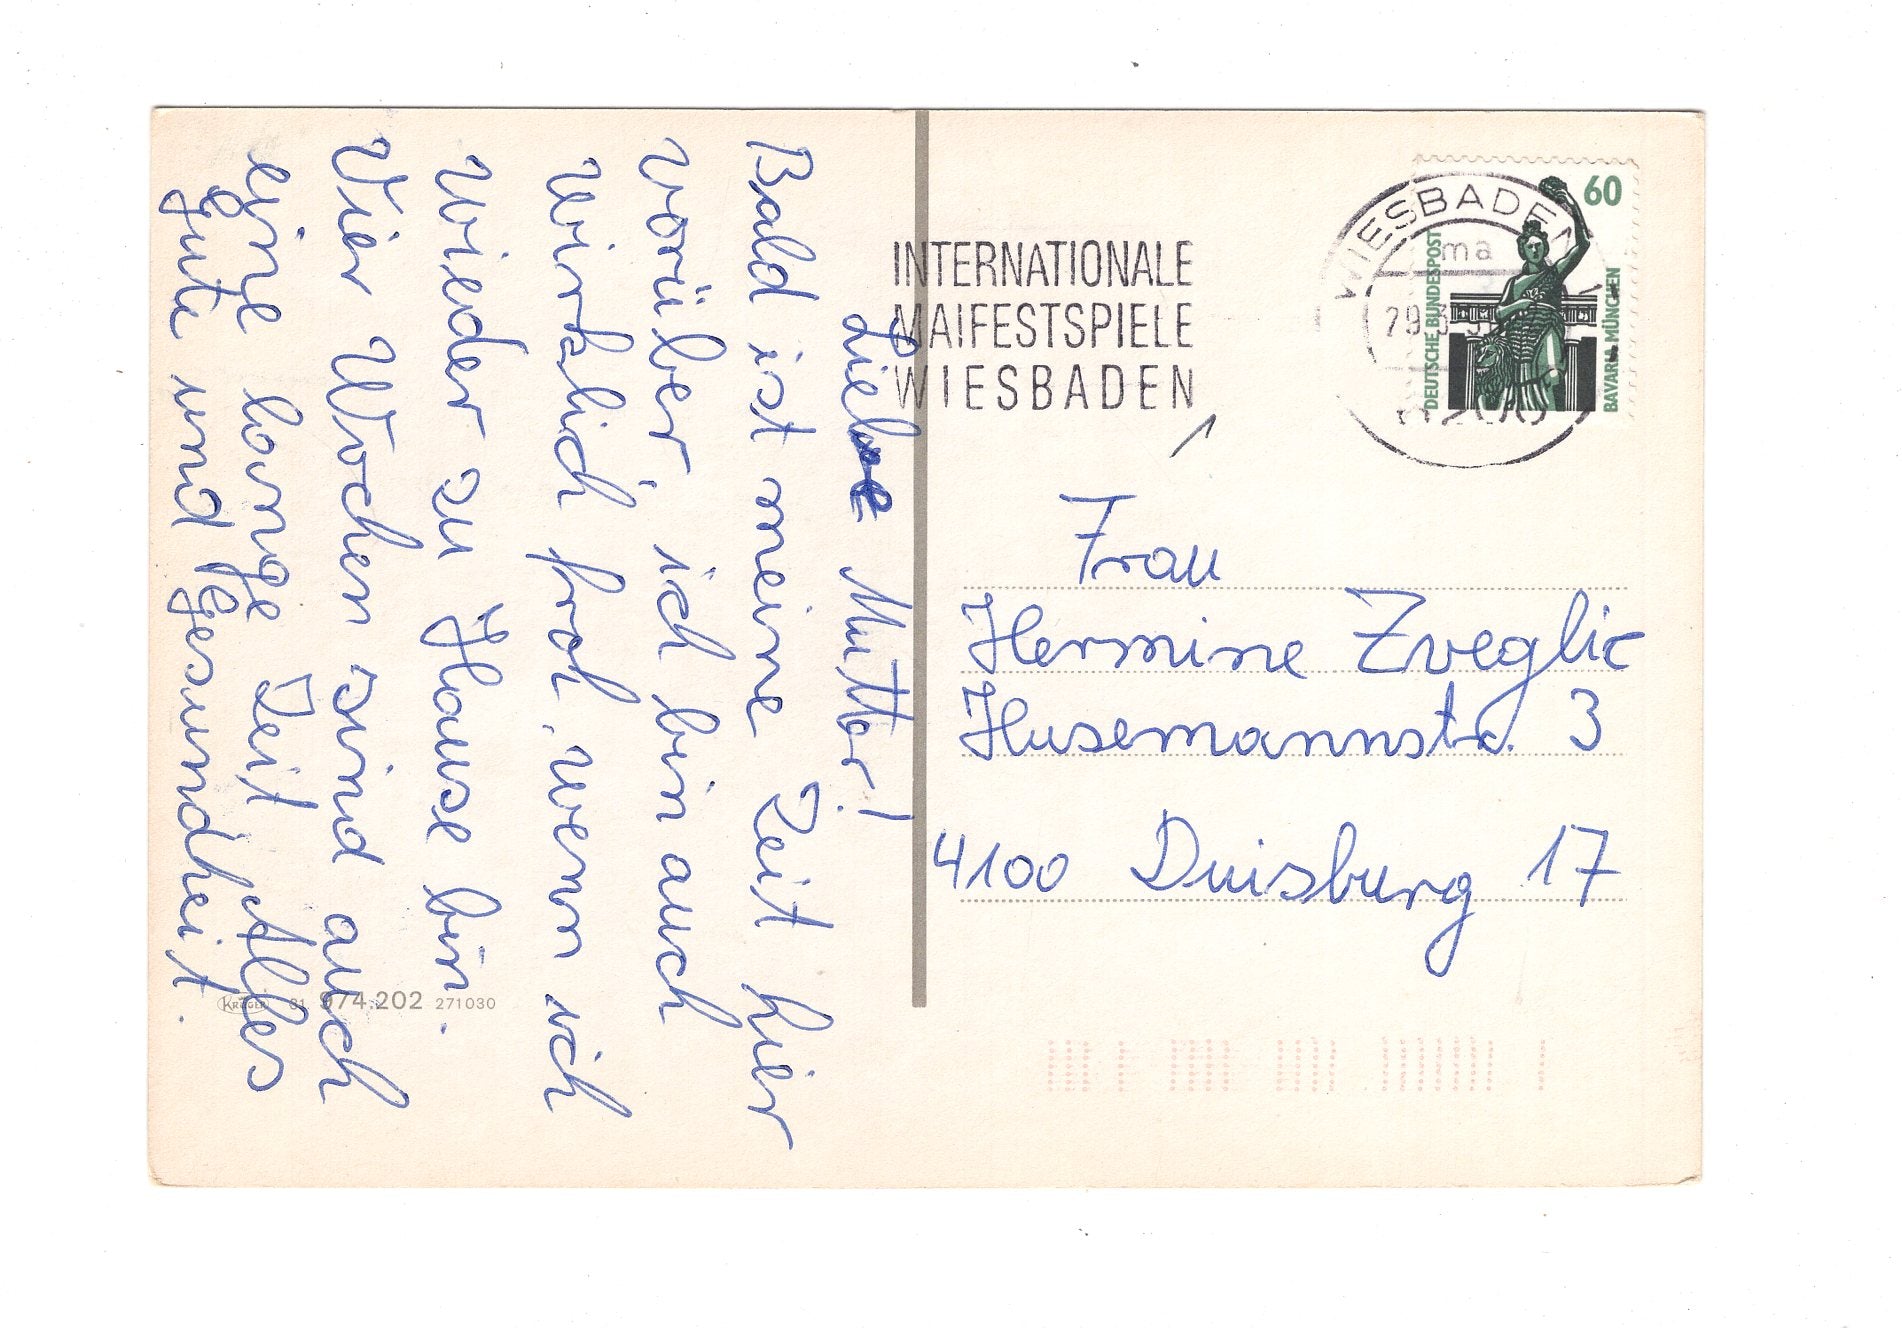 Liebe Mutter!
Bald ist meine Zeit hier
vorüber ich bin auch
wirklich froh, wenn ich
wieder zu Hause bin.
Vier Wochen sind auch
eine lange Zeit Alles
gute und Gesundheit.
KRÜGER 974.202 271030
INTERNATIONALE
MAIFESTSPIELE
WIESBADEN
WIESBADEN
ma
60
DEUTSCHE BUNDESPOST
BAVARIA MÜNCHEN
Frau
Hermine Zveglic
Husemannstr. 3
4100 Duisburg 17